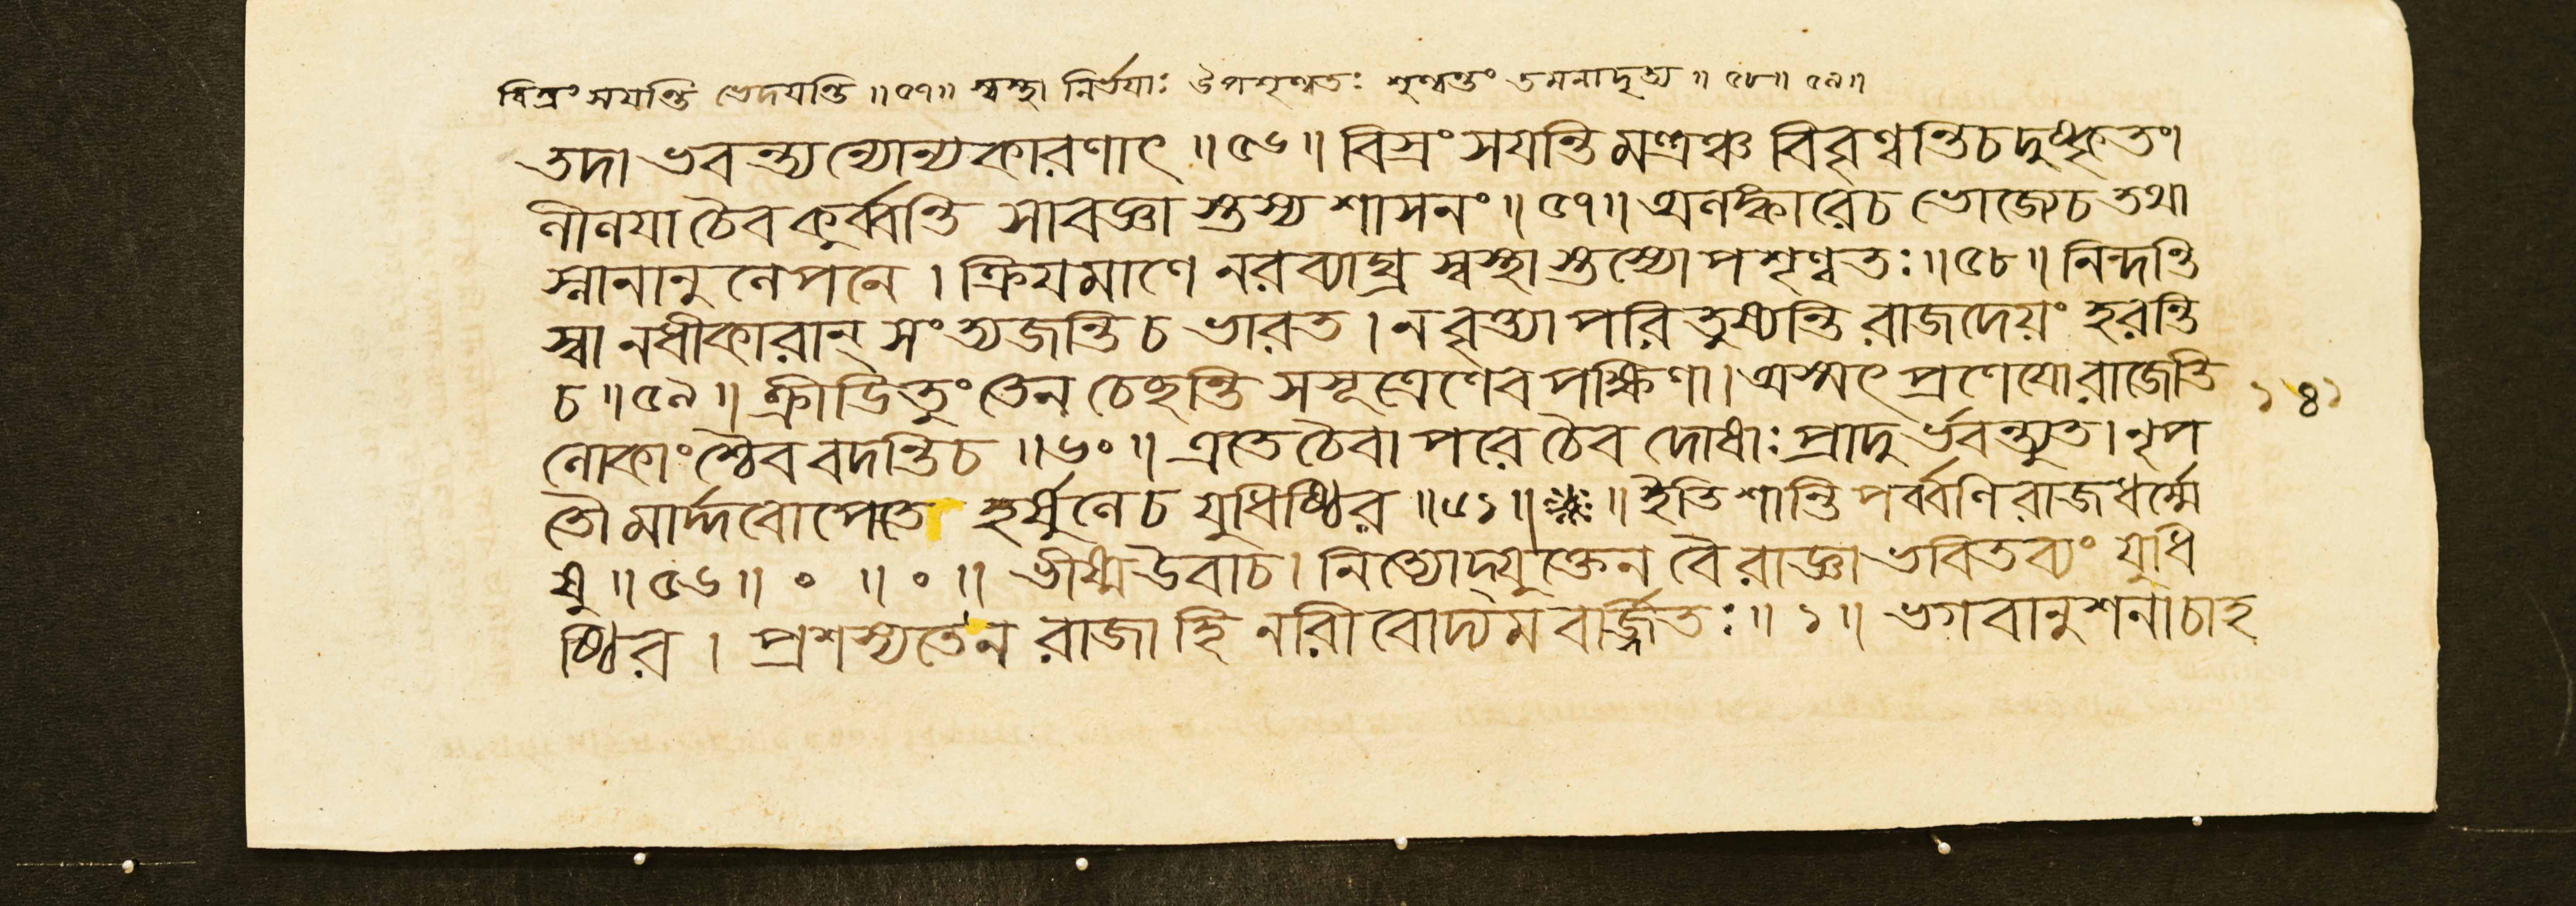 বিস্রংসযন্তি ভেদযন্তি ॥৫৭॥ স্বস্থা নির্ভযাঃ উপশৃণ্বতঃ শৃণ্বন্তং তমনাদৃত্য ॥ ৫৮॥ ৫৯॥
তদা ভবন্ত্যন্যোন্যকারণাৎ ॥৫৬॥ বিস্রংসযন্তি মন্ত্রঞ্চ বিবৃণ্বন্তি চ দুষ্কৃতং।
লীলযা চৈব কুর্ব্বন্তি সাবজ্ঞা স্তস্য শাসনং॥ ৫৭॥ অলঙ্কারেচ ভোজ্যেচ তথা
স্নানানুলেপনে । ক্রিযমাণে নরব্যাঘ্র স্বস্থা স্তস্যোপশৃণ্বতঃ॥৫৮॥ নিন্দন্তি
স্বানধীকারান্ সংত্যজন্তি চ ভারত । ন বৃত্ত্যা পরিতুষ্যন্তি রাজদেয়ং হরন্তি
চ ॥৫৯॥ ক্রীডিতুং তেন চেছন্তি সসূত্রেণেব পক্ষিণা। অস্মৎ প্রণেযো রাজেতি
১৪১
লোকাংশ্চৈব বদন্তিচ ॥৬০॥ এতে চৈবাপরে চৈব দোষাঃ প্রাদুর্ভবন্ত্যুত। নৃপ
তৌ মার্দ্দবোপেতে হর্ষুলেচ যুধিষ্ঠির ॥৬১॥ ॥ ইতি শান্তিপর্ব্বণি রাজধর্ম্মে
ষু ॥৫৬॥ ০ ॥ ০ ॥ ভীষ্ম উবাচ। নিত্যোদ্যুক্তেন বৈ রাজ্ঞা ভবিতব্যং যুধি
ষ্ঠির । প্রশস্যতে ন রাজা হি নারীবোদ্যমবর্জ্জিতঃ॥ ১॥ ভগবানুশনা চাহ